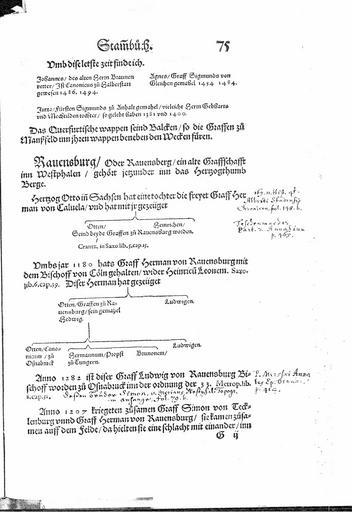 Stam̄būch. 75
Vmb dise letste zeit find ich.
Johannes/ des alten Herrn Braunen
vetter/ Jst Canonicus zu Halberstatt
gewesen 1486. 1494.
Agnes/ Graff Sigmunds von
Gleichen gemahel 1454 1484.
Jutta: Fürsten Sigmunds zu Anhalt gemahel/ vieleicht Herrn Gebharts
vnd Mechtilden tochter/ so gelebt haben 1381 vnd 1400.
Das Querfurtische wappen seind Balcken/ so die Graffen zū
Manßfeld inn jhren wappen beneben den Wecken füren.
Rauensburg/ Oder Rauensberg/ ein alte Graffschafft
inn Westphalen/ gehört jetzunder inn das Hertzogthumb
Berge.
Hertzog Otto in Sachsen hat eine tochter die freyet Graff Her
man von Caluela/ vnd hat mit jr gezeüget
Otten/ Heinrichen/
Seind beyde Graffen zū Rauensburg worden.
Crantz. in Saxo lib. 5. cap. 15.
Vmbs jar 1180 hats Graff Herman von Rauensburg mit
dem Bischoff von Cöln gehalten/ wider Heinricū Leonem. Saxo.
lib. 6. cap. 39. Diser Herman hat gezeüget
Otten/ Graffen zū Ra-
uensburg/ sein gemahel
Hedwig.
Ludwigen.
Otten/ Cano-
nicum/ zū
Oßnabruck
Hermannum/ Propst
zū Tungern.
Brunonem/
Ludwigen.
Anno 1282 ist diser Graff Ludwig von Rauensburg Bi-
schoff worden zū Oßnabruck inn der ordnung der 33. Metrop. lib.
8. cap. 31.
Anno 1207 kriegeten zūsamen Graff Simon von Teck-
lenburg vnnd Graff Herman von Rauensburg/ sie kamen zūsa-
men auff dem Felde/ da hielten sie eine schlacht mit einander/ inn
G ij